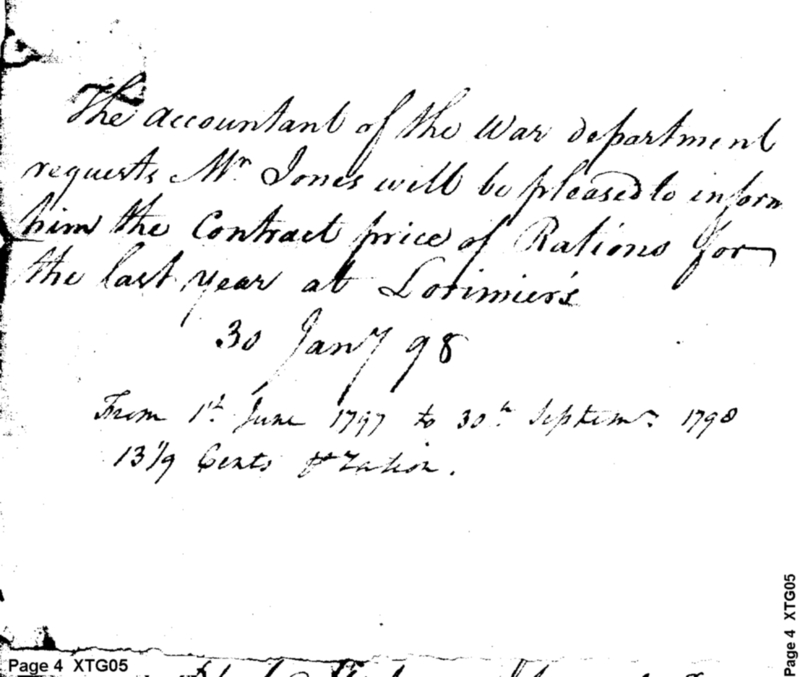 The accountant of the War department
requests Mr. Jones will be pleased to inform
him the Contract price of Rations for
the last year at Lorimier's
30 Jany 98
From 1st. June 1797 to 30th. Septemr. 1798
13 1/9 Cents ⅌ ration.
Page 4 XTG05
Page 4 XTG05